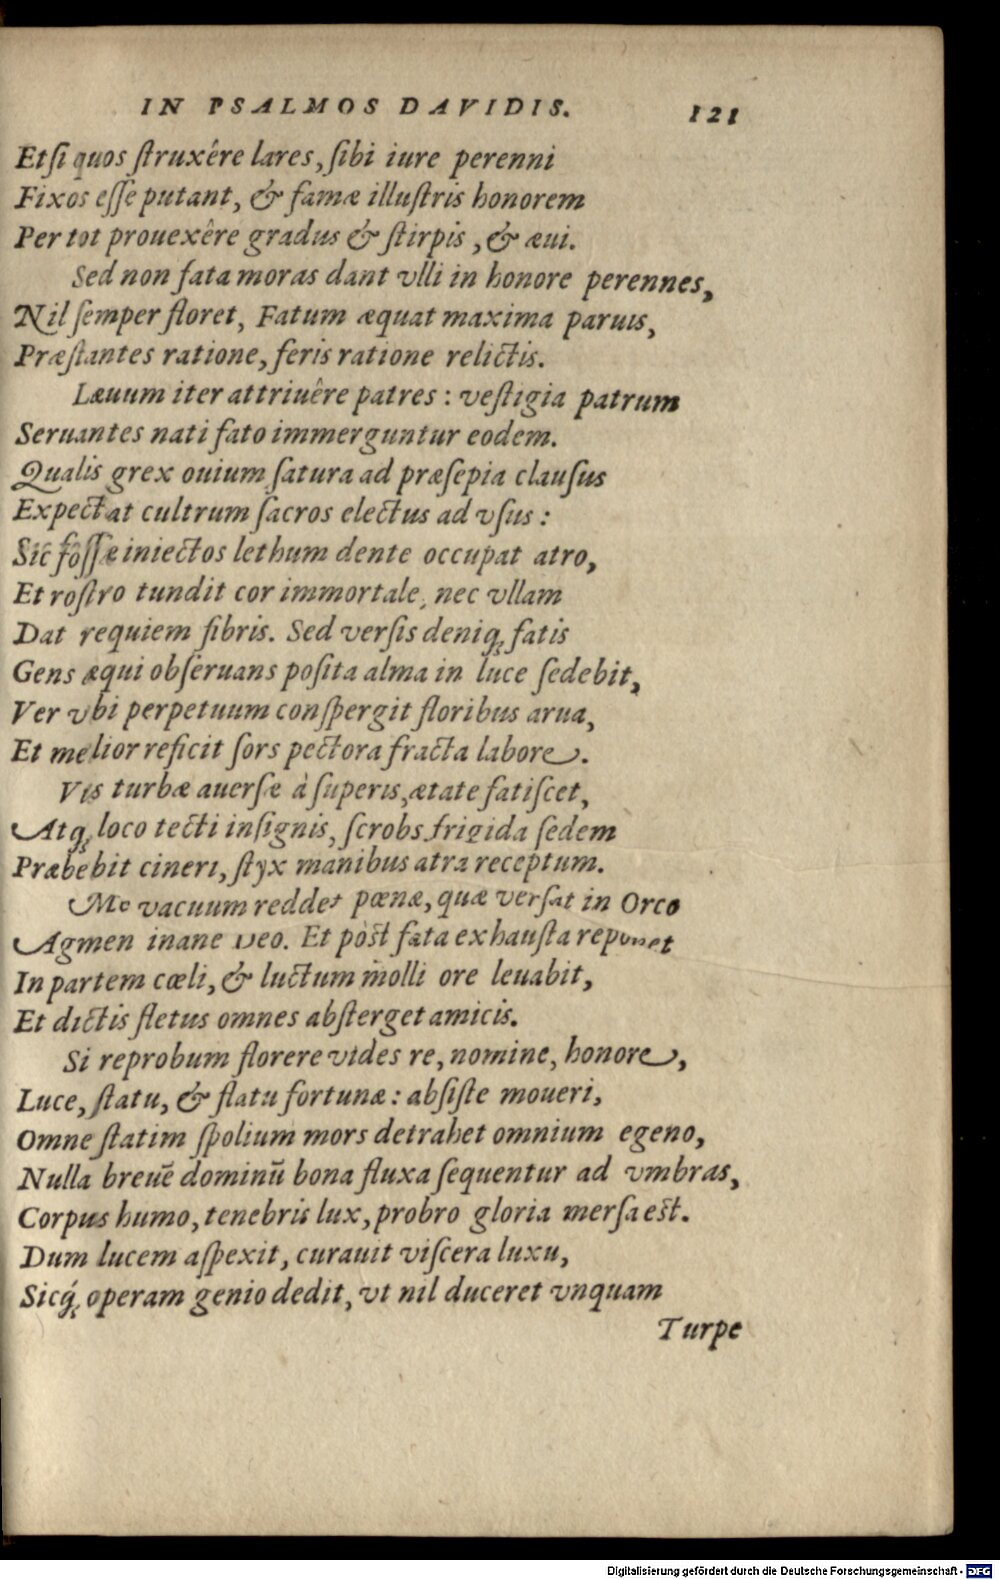 IN PSALMOS DAVIDIS. 121
Etsi quos struxêre lares, sibi iure perenni
Fixos esse putant, & famæ illustris honorem
Per tot prouexêre gradus & stirpis, & æui.
Sed non fata moras dant vlli in honore perennes,
Nil semper floret, Fatum æquat maxima paruis,
Præstantes ratione, feris ratione relictis.
Læuum iter attriuêre patres: vestigia patrum
Seruantes nati fato immerguntur eodem.
Qualis grex ouium satura ad præsepia clausus
Expectat cultrum sacros electus ad vsus:
Sic fossæ iniectos lethum dente occupat atro,
Et rostro tundit cor immortale, nec vllam
Dat requiem fibris. Sed versis deniq; fatis
Gens æqui obseruans posita alma in luce sedebit,
Ver vbi perpetuum conspergit floribus arua,
Et melior reficit sors pectora fracta labore.
Vis turbæ auersæ à superis, ætate fatiscet,
Atq; loco tecti insignis, scrobs frigida sedem
Præbebit cineri, styx manibus atra receptum.
Me vacuum reddet pœnæ, quæ versat in Orco
Agmen inane Deo. Et pòst fata exhausta reponet
In partem cœli, & luctum molli ore leuabit,
Et dictis fletus omnes absterget amicis.
Si reprobum florere vides re, nomine, honore,
Luce, statu, & flatu fortunæ: absiste moueri,
Omne statim spolium mors detrahet omnium egeno,
Nulla breuē dominū bona fluxa sequentur ad vmbras,
Corpus humo, tenebris lux, probro gloria mersa est.
Dum lucem aspexit, curauit viscera luxu,
Sicq́; operam genio dedit, vt nil duceret vnquam
Turpe
Digitalisierung gefördert durch die Deutsche Forschungsgemeinschaft - DFG